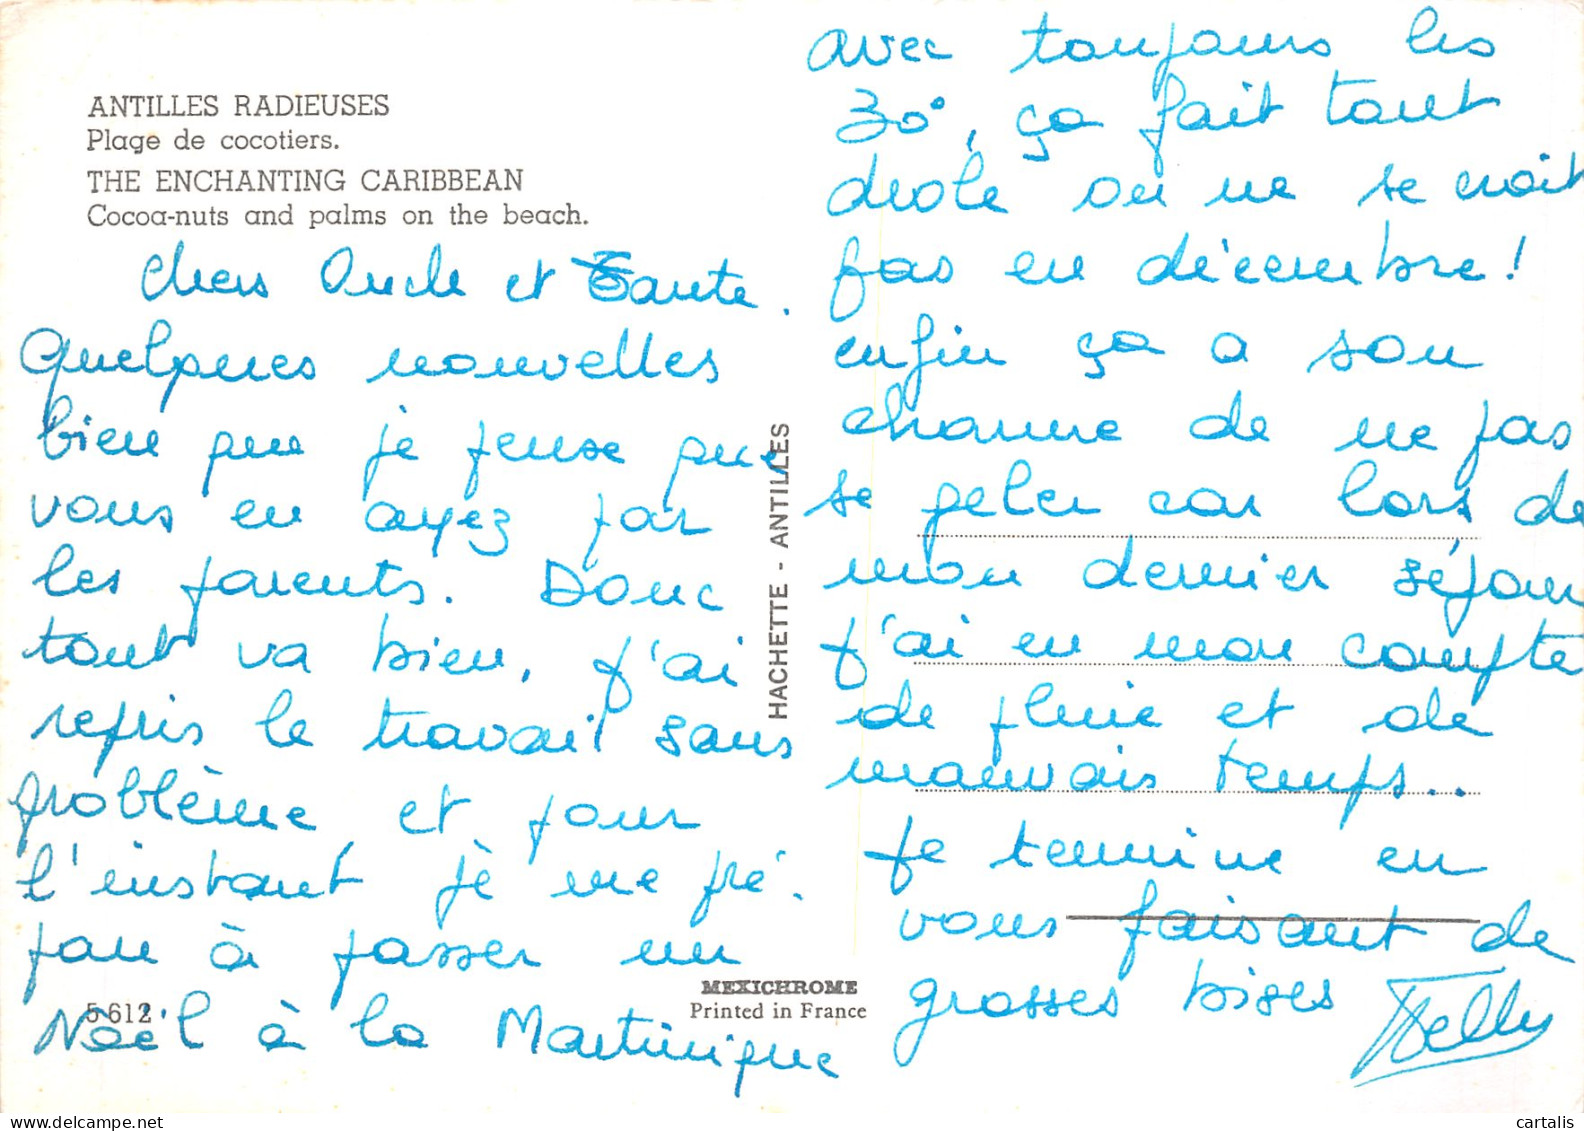 ANTILLES RADIEUSES
Plage de cocotiers.
THE ENCHANTING CARIBBEAN
Cocoa-nuts and palms on the beach.
Chers Oncle et Tante.
Quelques nouvelles
bien que je pense que
vous en ayez par
les parents. Donc
tout va bien, j'ai
repris le travail sans
problème et pour
l'instant je me pré-
pare à passer un
Noël à la Martinique
5 612
HACHETTE - ANTILLES
MEXICHROME
Printed in France
avec toujours les
30°, ça fait tout
drole on ne se croit
pas en décembre!
enfin ça a son
charme de ne pas
se geler car lors de
mon dernier séjour
j'ai eu mon compte
de pluie et de
mauvais temps..
Je termine en
vous faisant de
grosses bises
Nelly
cartalis